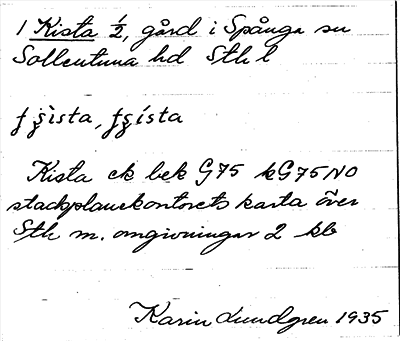 1 Kista 1/2, gård i Spånga sn
Sollentuna hd Sth l
Kista ek bek G75 kG75NO
stadsplanekontorets karta över
Sth m. omgivningar 2 kb
Karin Lundgren 1935